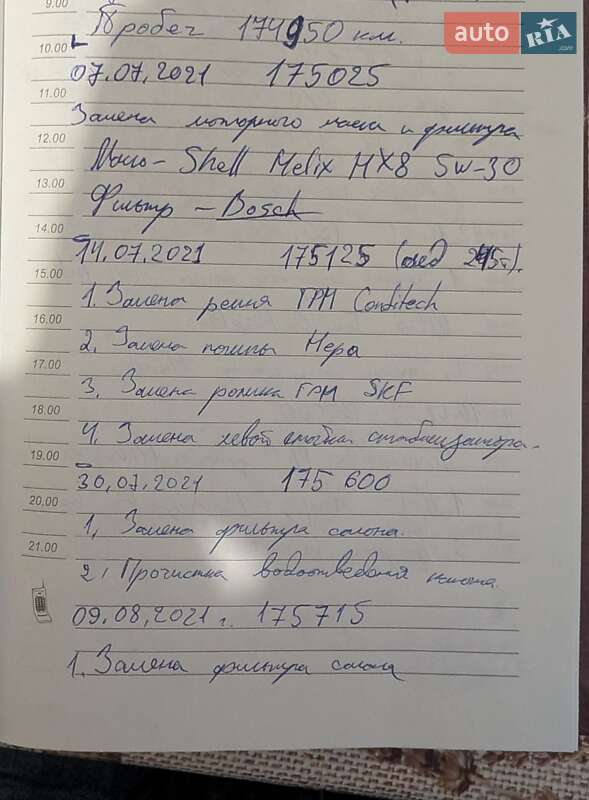 9.00
Пробег 174950 км.
auto RIA .com
10.00
07.07.2021 175025
11.00
Замена моторного масла и фильтра
12.00
Масло - Shell Helix HX8 5W-30
13.00
Фильтр - Bosch
14.00
14.07.2021 175125 (след 245т).
15.00
1. Замена ремня ГРМ Contitech
16.00
2. Замена помпы Hepa
17.00
3. Замена ролика ГРМ SKF
18.00
4. Замена левой стойки стабилизатора.
19.00
30.07.2021 175 600
20.00
1, Замена фильтра салона.
21.00
2, Прочистка водоотведения
09.08.2021 г. 175715
1. Замена фильтра салона